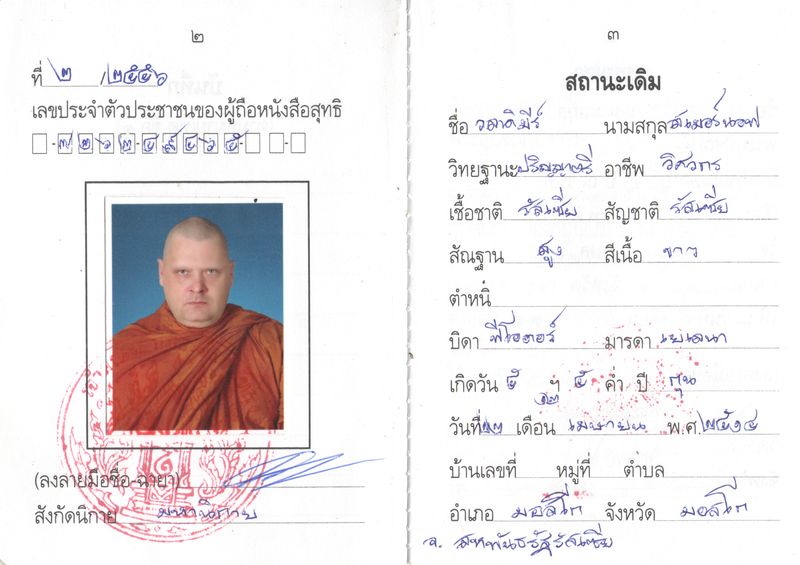 ๒
ที่ ๒ /๒๕๕๖
เลขประจำตัวประชาชนของผู้ถือหนังสือสุทธิ
(ลงลายมือชื่อ-ฉายา)
สังกัดนิกาย มหานิกาย
๓
สถานะเดิม
ชื่อ วลาดิมีร์ นามสกุล
วิทยฐานะ ปริญญาตรี อาชีพ วิศวกร
เชื้อชาติ รัสเซีย สัญชาติ รัสเซีย
สัณฐาน สูง สีเนื้อ ขาว
ตำหนิ
บิดา ฟีโอดอร์ มารดา เยเลนา
เกิดวัน ๕ ฯ ๕ ค่ำ ปี กุน
๑๒
วันที่ ๑๓ เดือน เมษายน พ.ศ. ๒๕๑๔
บ้านเลขที่ หมู่ที่ ตำบล
อำเภอ มอสโก จังหวัด มอสโก
สหพันธรัฐรัสเซีย